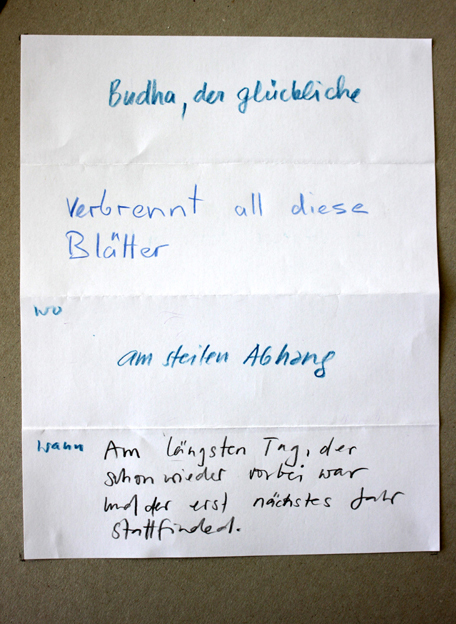 Budha, der glückliche
verbrennt all diese
Blätter
wo
am steilen Abhang
wann
Am längsten Tag, der
schon wieder vorbei war
und der erst nächstes Jahr
stattfinded.